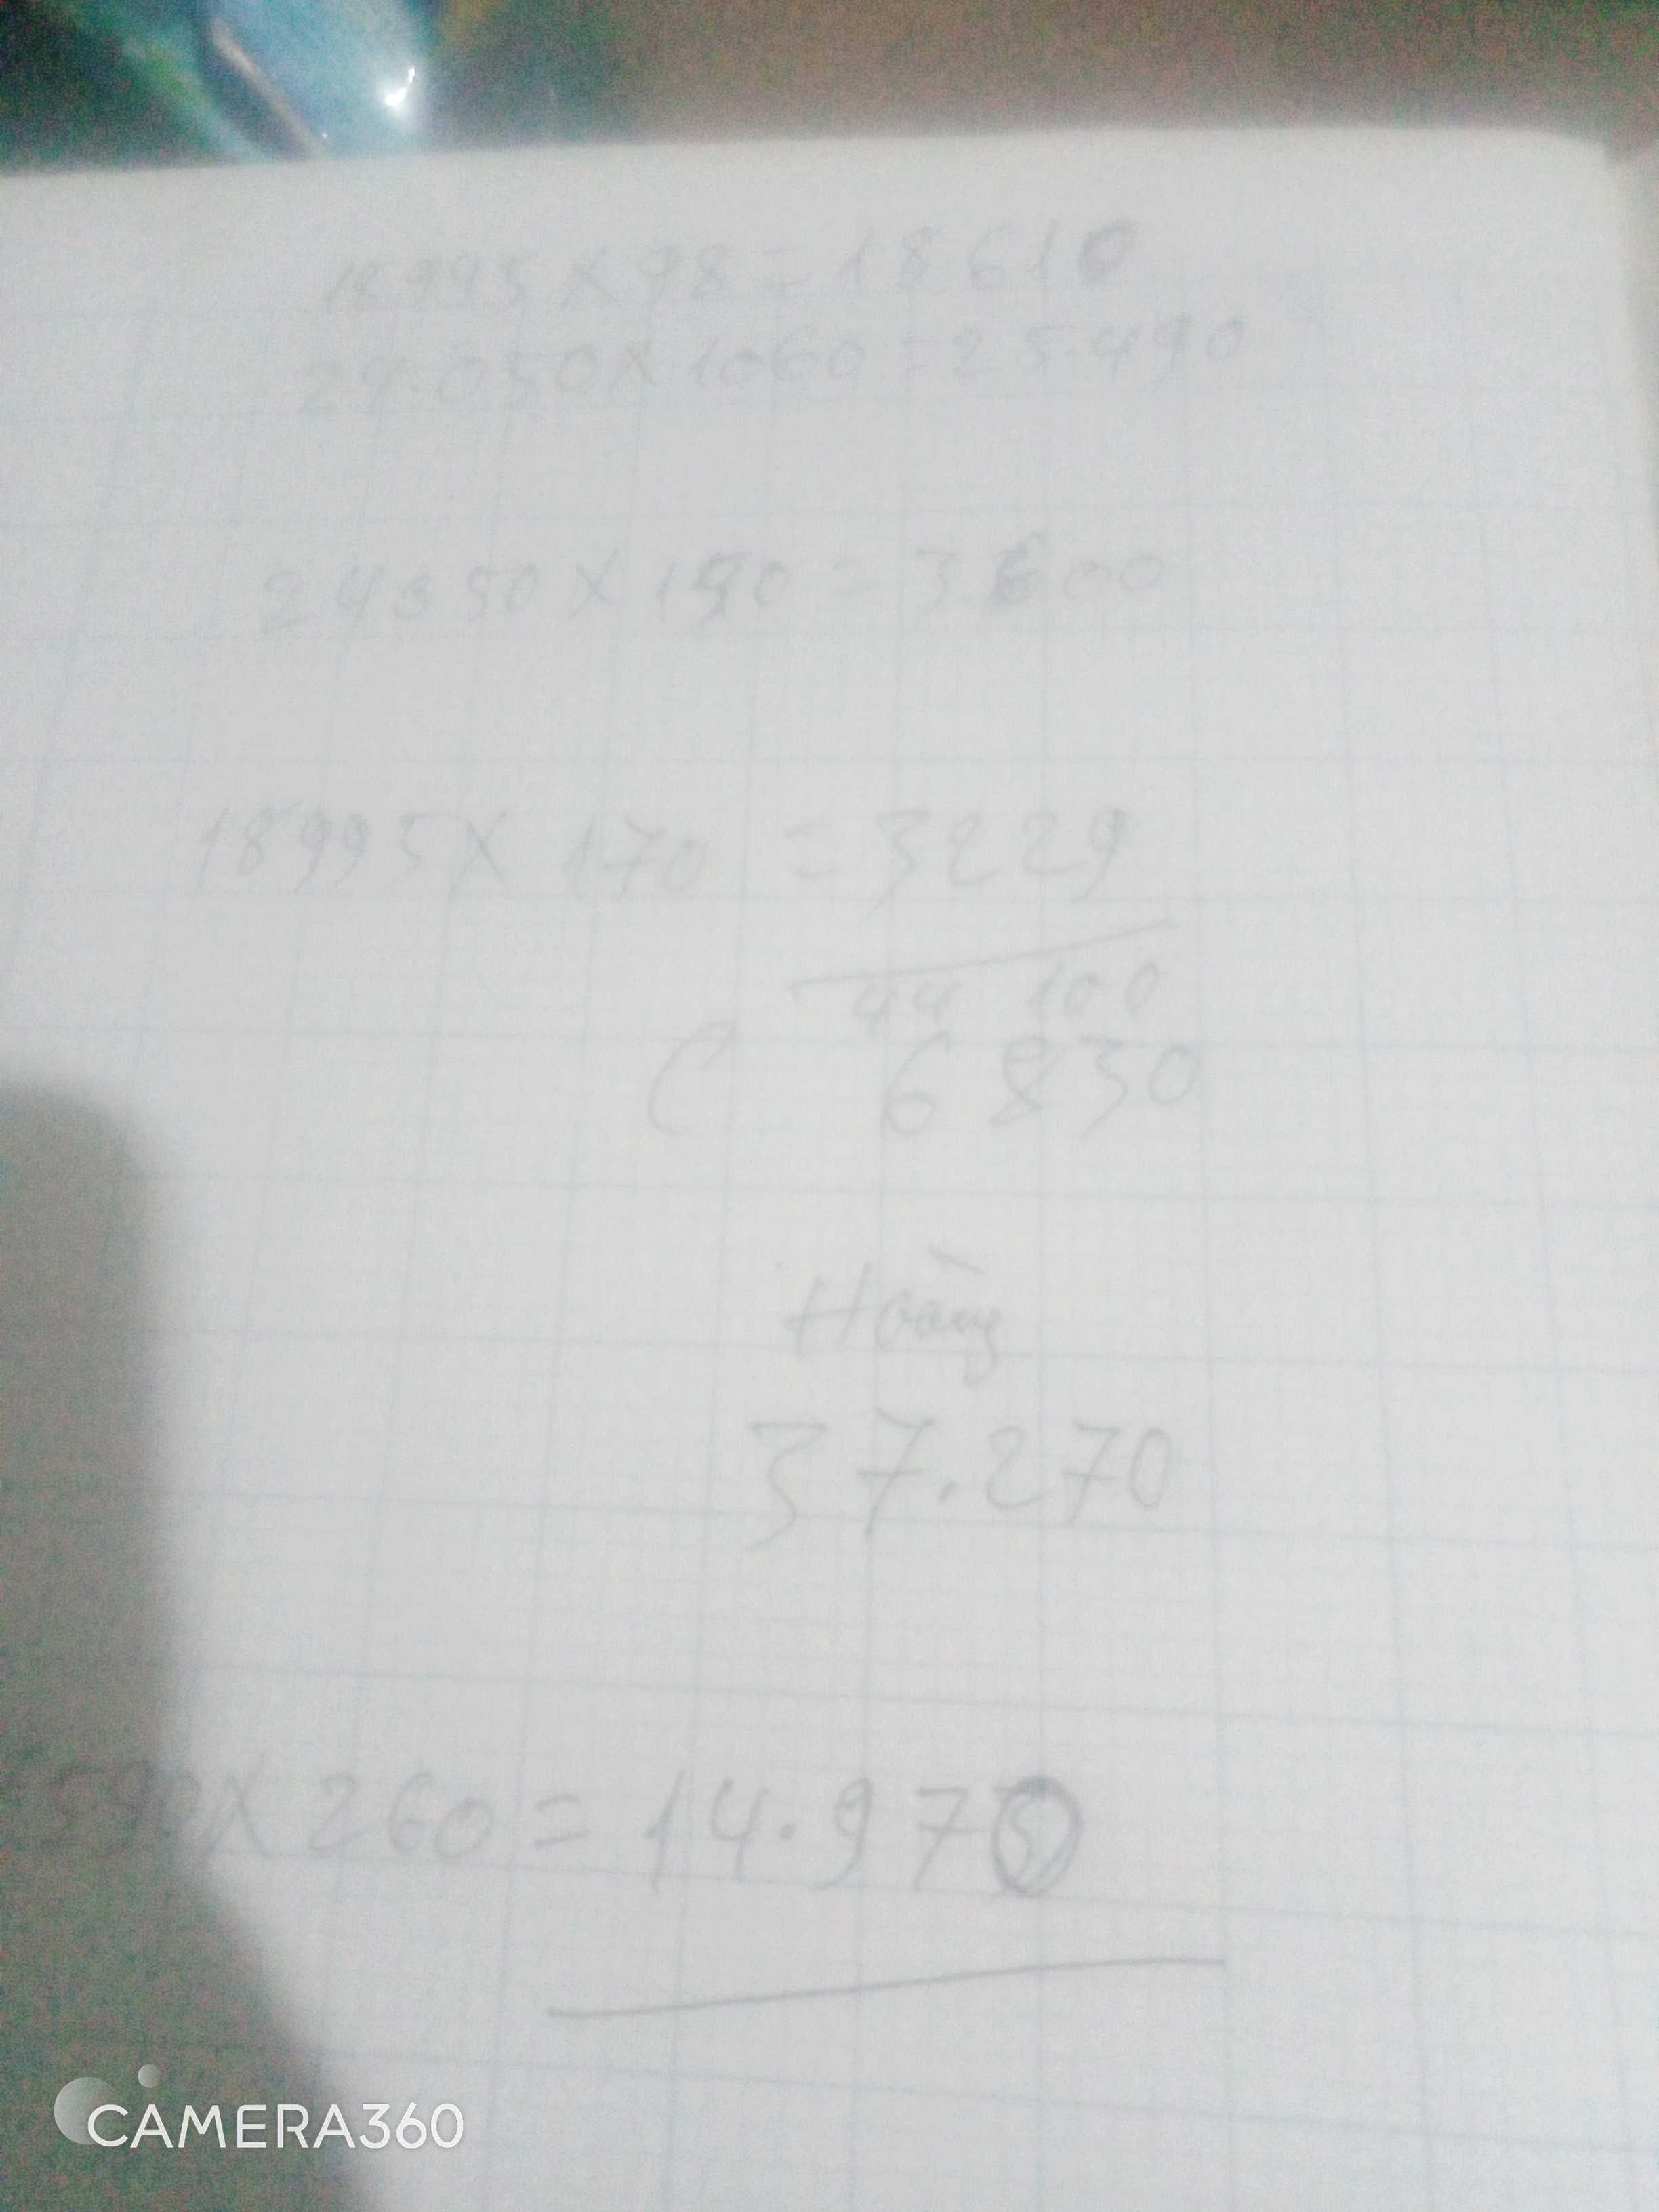 18995 X 98 = 18610
24.050 X 1060 = 25.490
24050 X 150 = 3.600
18995 X 170 = 3229
44 100
C 6830
Hoàng
37.270
590 X 260 = 14.970
CAMERA360